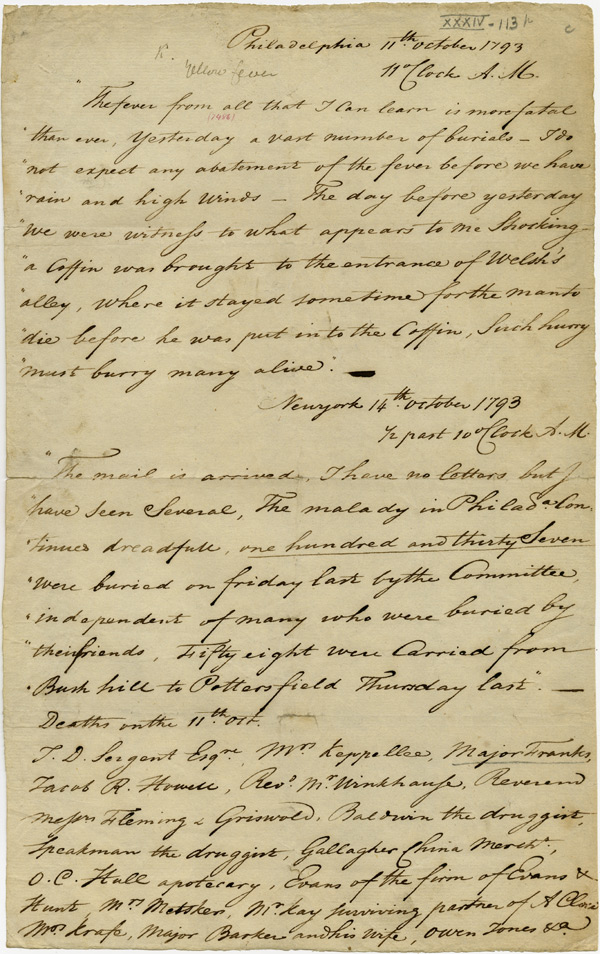 XXXIV-113
Philadelphia 11th October 1793
Yellow fever
11 o'Clock A.M.
"The fever from all that I can learn is more fatal
"than ever, Yesterday a vast number of burials – I do
"not expect any abatement of the fever before we have
"rain and high winds – The day before yesterday
"we were witness to what appears to me Shocking –
"a Coffin was brought to the entrance of Welsh's
"alley, where it stayed sometime for the man to
"die before he was put into the Coffin, Such hurry
"must burry many alive". —
Newyork 14th October 1793
½ past 10 o'Clock A.M.
"The mail is arrived, I have no Letters but I
"have seen Several, The malady in Philada Con-
"tinues dreadfull, one hundred and thirty Seven
"were buried on friday last by the Committee,
"independent of many who were buried by
"their friends, Fifty eight were Carried from
"Bush hill to Pottersfield Thursday last". —
Deaths on the 11th Oct.
J. D. Sergent Esqre, Mrs Keppellee, Major Franks,
Jacob R. Howell, Revd Mr Winkhause, Reverend
Messrs Fleming & Griswold, Baldwin the druggist,
Speakman the druggist, Gallagher China Mercht,
O. C. Hull apotecary, Evans of the firm of Evans &
Hunt, Mrs Mr Kay surviving partner of A
Mrs Krafs, Major Barker and his Wife, Owen Jones &a